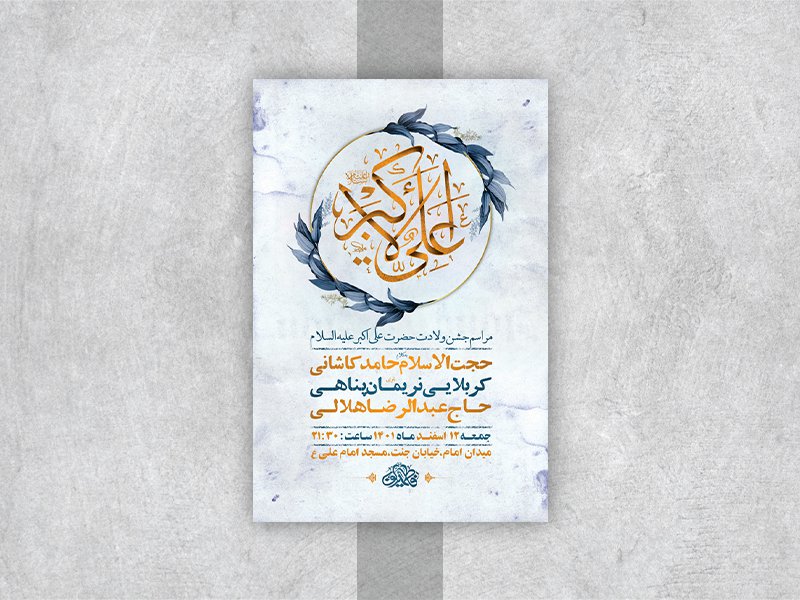 علی الاکبر
مراسم جشن ولادت حضرت علی اکبر علیه السلام
حجت الاسلام حامد کاشانی
کربلایی نریمان پناهی
حاج عبدالرضا هلالی
جمعه ۱۲ اسفند ماه ۱۴۰۱ ساعت : ۲۱:۳۰
میدان امام، خیابان جنت، مسجد امام علی ع